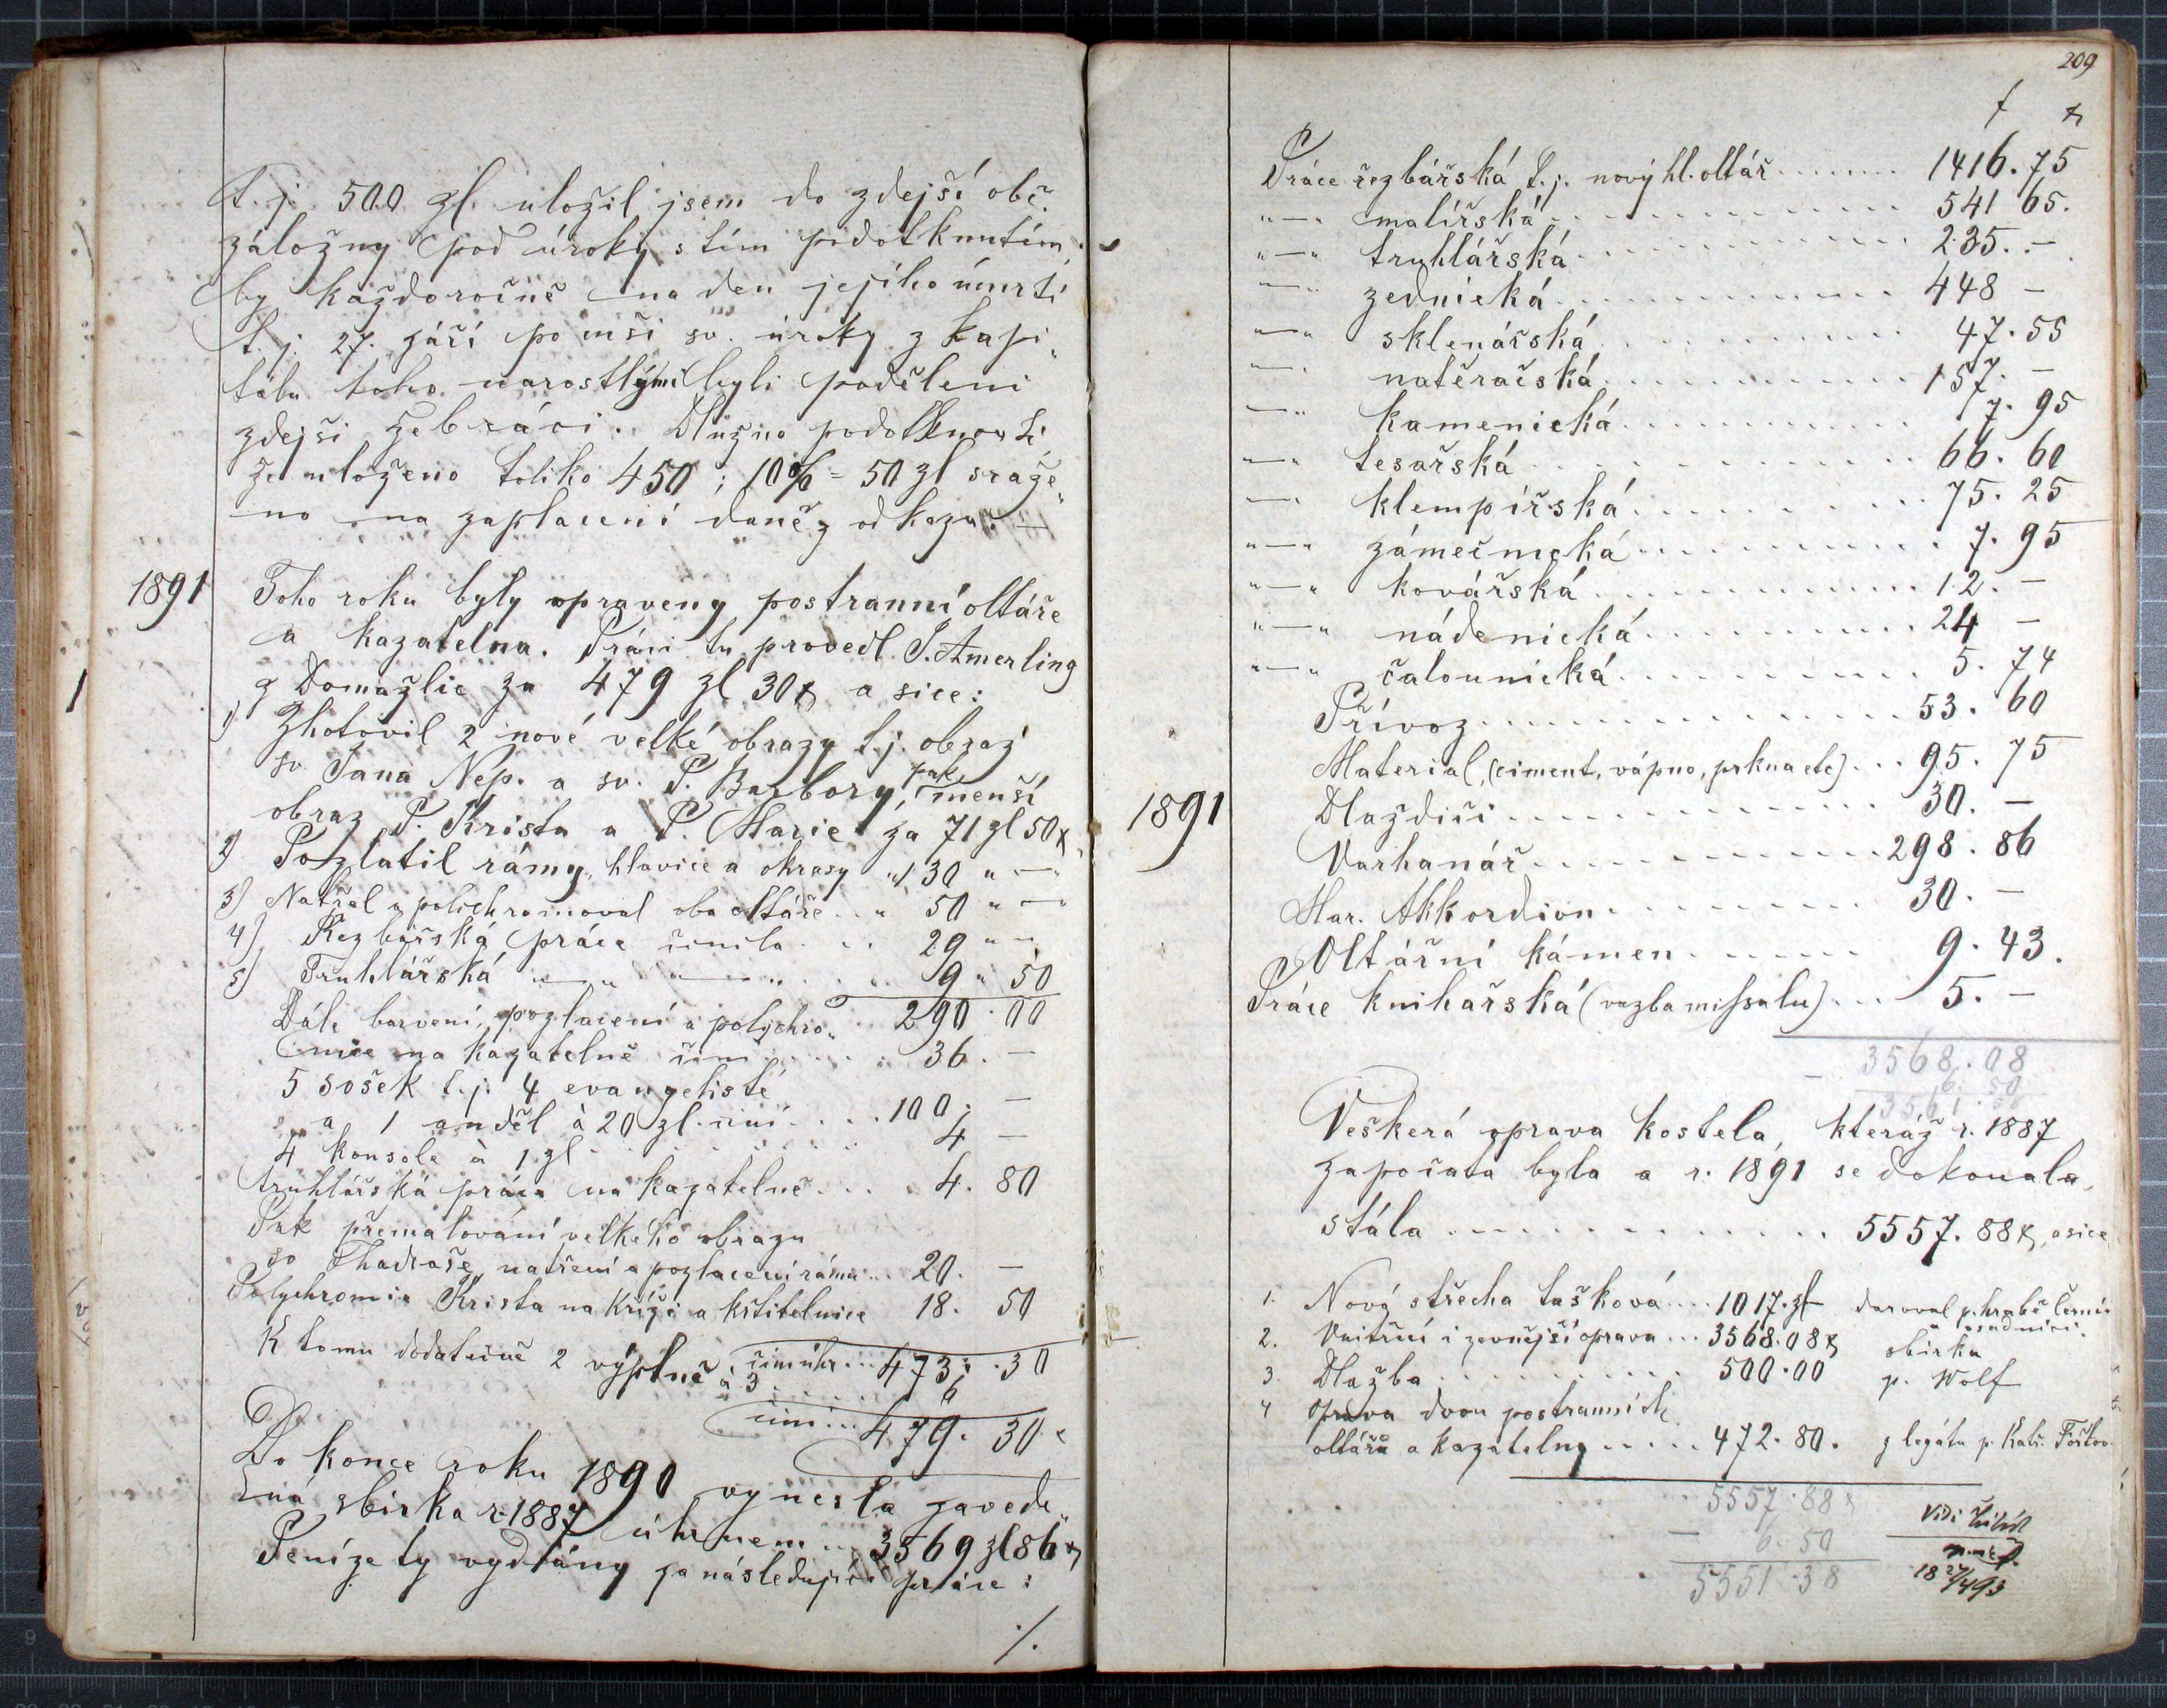 t. j. 500 zl. uložil jsem do zdejší obč.
záložny pod úroky s tím podotknutím,
by každoročně na den jejího úmrtí
t. j. 27. září po mši sv. úroky z kapi„
tálu toho narostlými byli poděleni
zdejší žebráci. Dlužno podotknouti,
že uloženo toliko 450; 10% = 50 zl sraže„
no na zaplacení daně z odkazu. —
1891
Toho roku byly opraveny postranní oltáře
a kazatelna. Práci tu provedl J. Amerling
z Domažlic za 479 zl 30 x a sice:
1) Zhotovil 2 nové velké obrazy t.j. obraz
sv Jana Nep. a sv. P. Barbory, pak menší
obraz P. Krista a P. Marie za 71 zl 50 x
2) Pozlatil rámy, hlavice a okrasy „ 130 „ — „
3) Natřel a polichromoval oba oltáře .. „ 50 „ — „
4) Řezbářská práce činila . .. 29 „ — „
5) Truhlářská „ — „ — „ . . . . 9 „ 50
290 . 00
Dále barvení, pozlacení a polychro„
mie na kazatelně činí . . . . . 36. —
5 sošek t.j. 4 evangelisté
a 1 anděl à 20 zl. činí . . . . 100. —
4 konsole à 1 zl . . . . . . . . 4 —
truhlářská práce na kazatelně . . . . 4. 80
Pak přemalování velkého obrazu
sv Thadeáše, natření a pozlacení rámu . . 20. —
Polychromie Krista na kříži a křtitelnice 18. 50
činí úhr ... 473 . 30
K tomu dodatečně 2 výplně à 3 . . . . . . 6
činí ... 479. 30 x
Do konce roku 1890 vynesla zavede„
ná sbírka r. 1887 úhrnem ... 3569 zl 86 x
Peníze ty vydány za následující práce:
./.
209
f x
Práce řezbářská t. j. nový hl. oltář . . . . . . . 1416. 75
„ — „ malířská . . . . . . . . . . . . 541 65.
„ — „ truhlářská . . . . . . . . . . . 235. —
„ — „ zednická . . . . . . . . . . . . 448 —
„ — „ sklenářská . . . . . . . . . . 47. 55
„ — „ natěračská . . . . . . . . . . 157. —
„ — „ kamenická . . . . . . . . . . 7. 95
„ — „ tesařská . . . . . . . . . . . 66. 60
„ — „ klempířská . . . . . . . . . . 75. 25
„ — „ zámečnická . . . . . . . . . 7. 95
„ — „ kovářská . . . . . . . . . . . 12. —
„ — „ nádenická . . . . . . . . . . 24 —
„ — „ čalounická . . . . . . . . . . 5. 74
Přívoz . . . . . . . . . . . . . . 53. 60
Material, (ciment, vápno, prkna etc) . . . 95. 75
1891
Dlaždiči . . . . . . . . . . . . 30. —
Varhanář . . . . . . . . . . . 298. 86
Har. Akkordion . . . . . . . . . 30. —
Oltářní kámen . . . . . . . 9. 43.
Práce knihařská (vazba missalu) . . . 5. —
3568. 08
— 6. 50
Veškerá oprava kostela, kteráž r. 1887
započata byla a r. 1891 se dokonala,
stála . . . . . . . . . . . . . 5557. 88 x, a sice
1. Nový střecha tašková . . . . 1017. zl — daroval p. hrabě Černín
2. Vnitřní i zevnější oprava . . . 3568. 08 x sbírka
3. Dlažba . . . . . . . . . . . 500. 00 p. Wolf
4 Oprava dvou postranních
oltářů a kazatelny . . . . . 472. 80. z legátu p. Kateř.
5557. 88 x
— 6. 50
5551. 38
Vidi
18 27/4 93